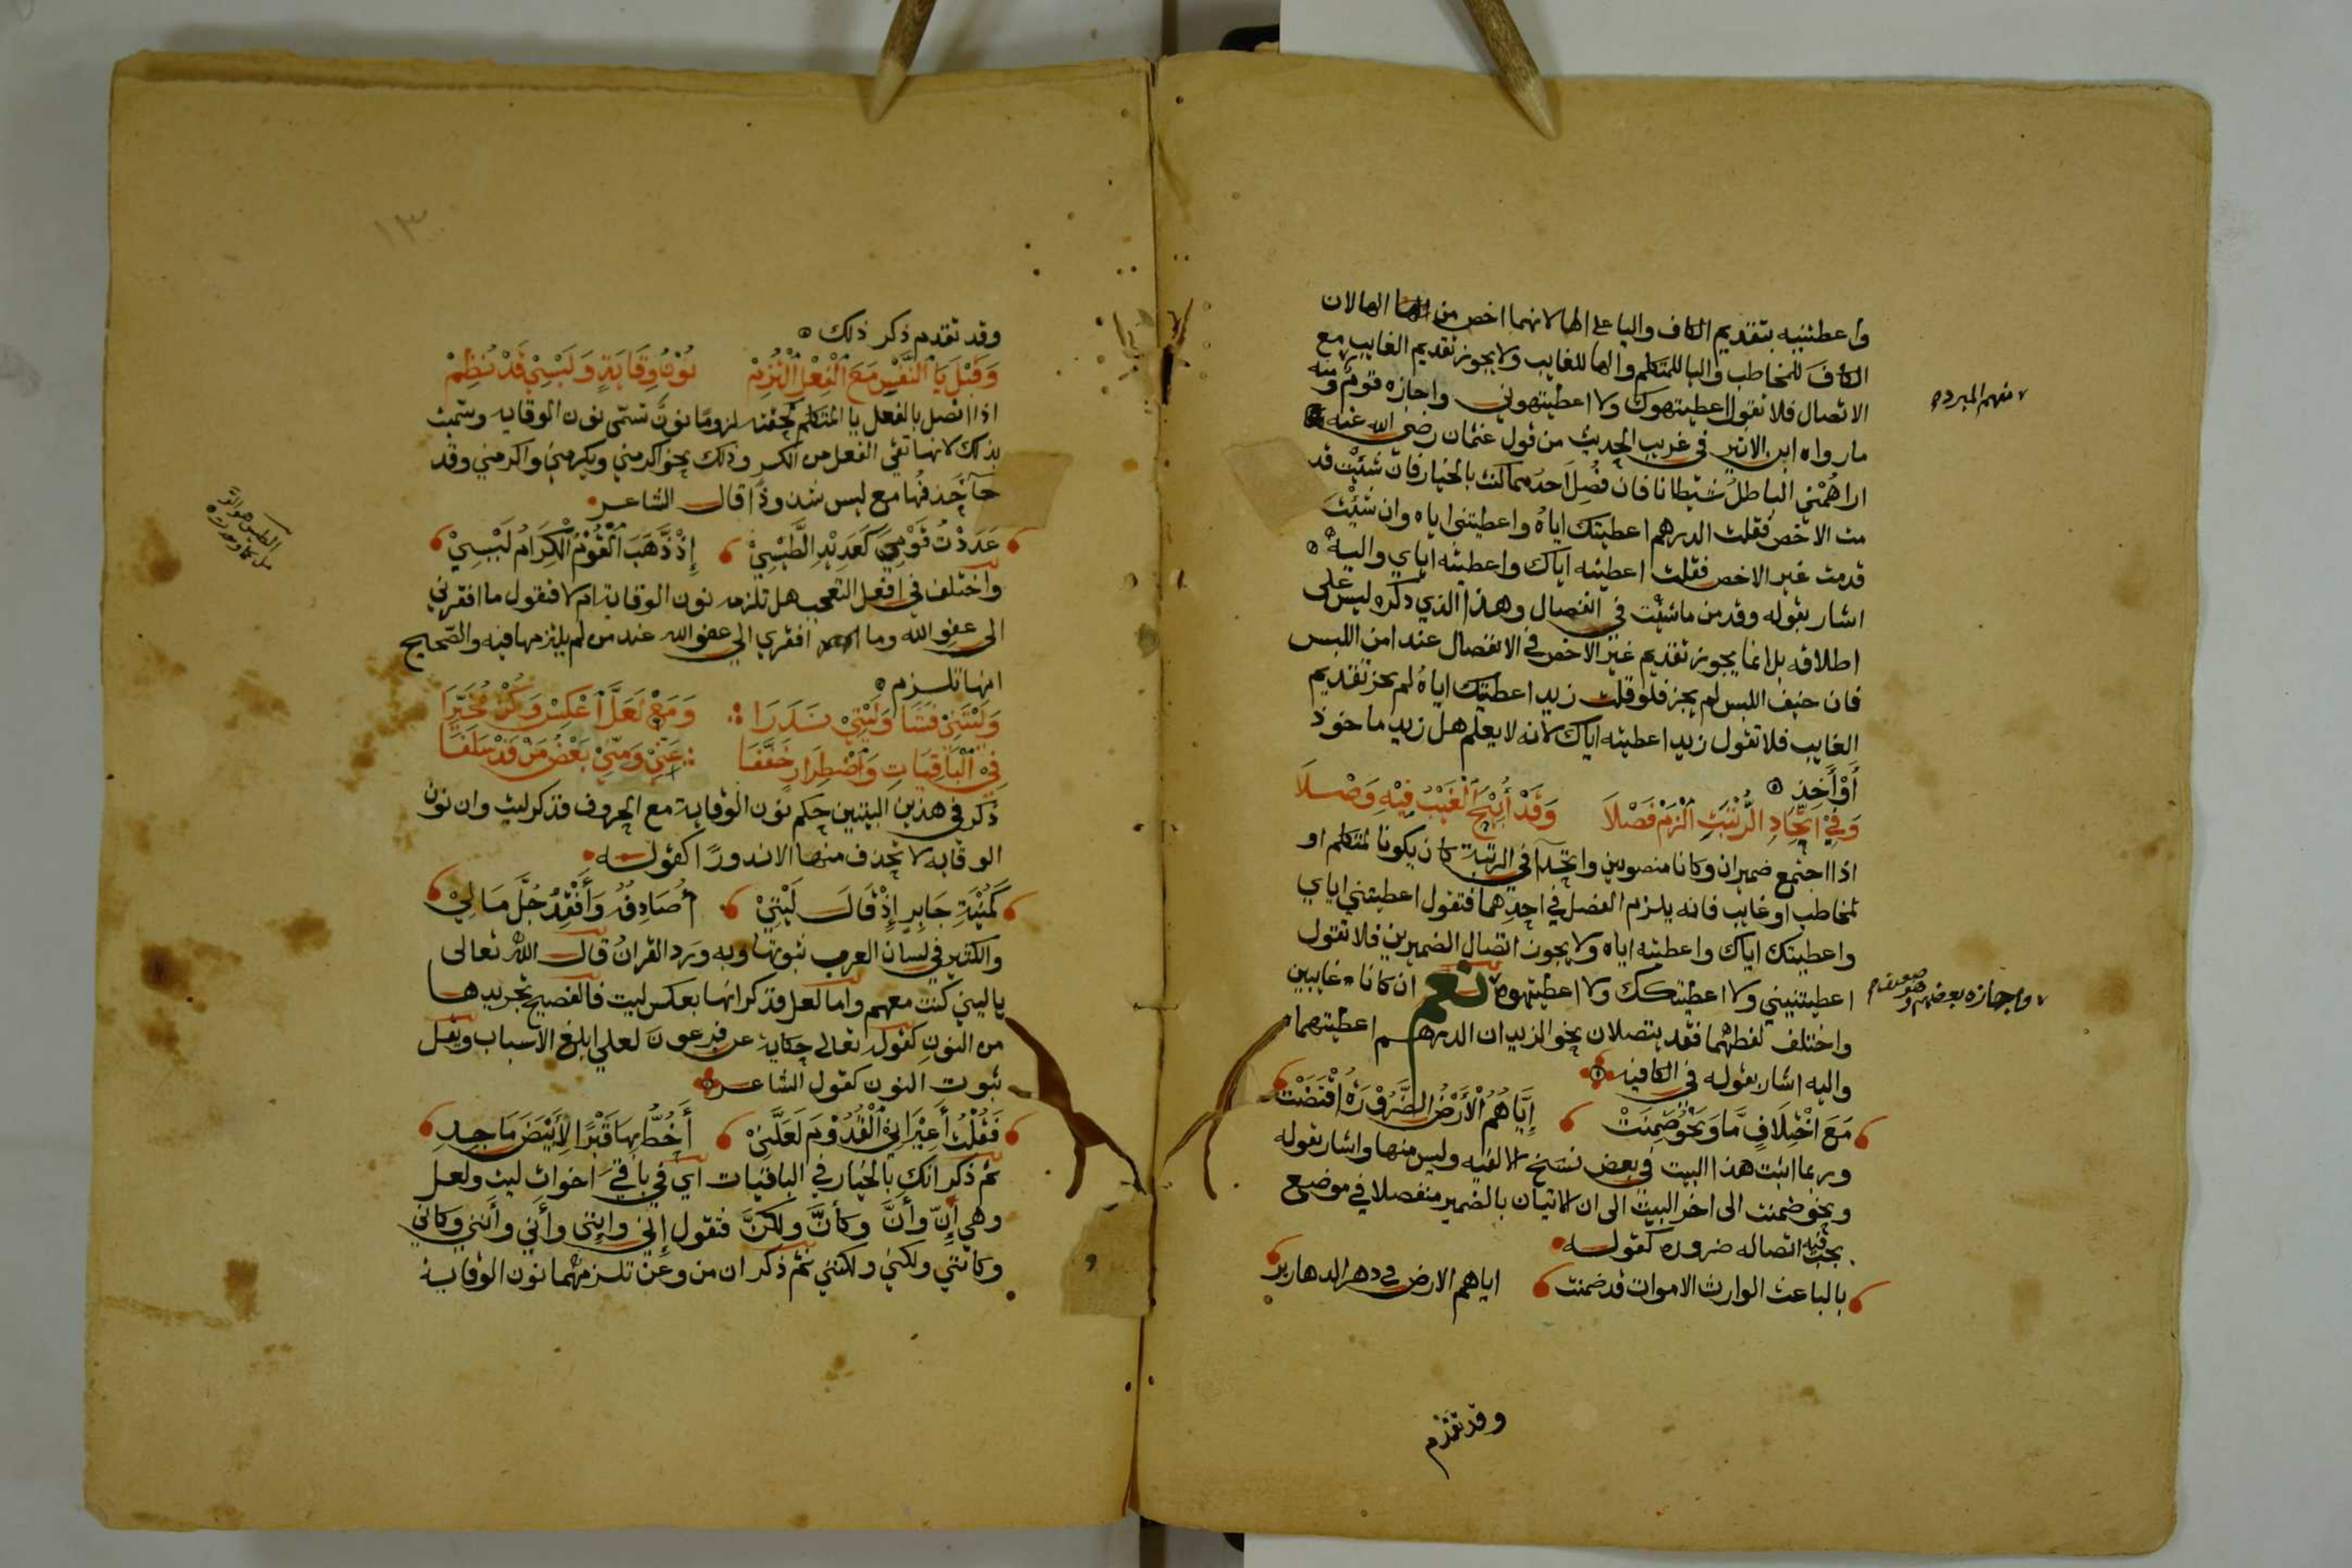 واعطيتنيه بتقديم الكاف واليا على الها لانهما اخص من الها لان
الكاف للمخاطب واليا للمتكلم والها للغايب ولا يجوز تقديم الغايب مع
الاتصال فلا تقول اعطيتهوك ولا اعطيتهوني واجازه قوم ومنه
منهم المبرد
ما رواه ابن الاثير في غريب الحديث من قول عثمان رضي الله عنه
اراهمني الباطل شيطانا فان فصل احدهما كنت بالخيار فان شئت قد
مت الاخص فقلت الدرهم اعطيتك اياه واعطيتني اياه وان شئت
قدمت غير الاخص فقلت اعطيته اياك واعطيته اياي واليه
اشار بقوله وقدمن ما شئت في انفصال وهذا الذي ذكره ليس على
اطلاقه بل انما يجوز تقديم غير الاخص في الانفصال عند امن اللبس
فان خيف اللبس لم يجز فلو قلت زيد اعطيتك اياه لم يجز تقديم
الغايب فلا تقول زيد اعطيته اياك لانه لا يعلم هل زيد ماخوذ
أو آخذ
وَفِي اتِّحَادِ الرُّتْبَةِ الْزَمْ فَصْلَا وَقَدْ أُبِيحَ الْغَيْبُ فِيْهِ وَصْلَا
اذا اجتمع ضميران وكانا منصوبين واتحدا في الرتبة كان يكونا لمتكلم او
لمخاطب او غايب فانه يلزم الفصل في احدهما فتقول اعطيتني اياي
واعطيتك اياك واعطيته اياه ولا يجوز اتصال الضميرين فلا تقول
اعطيتنيني ولا اعطيتكك ولا اعطيتهوه نعم ان كانا غايبين
واجازه بعضهم وهو ضعيف
واختلف لفظهما فقد يتصلان نحو الزيدان الدرهم اعطيتهماه
واليه اشار بقوله في الكافيه
مَعَ اخْتِلَافٍ مَّا وَنَحْوُ ضَمِنَتْ إِيَّاهُمُ الْأَرْضُ الضَّرُوْرَةُ اقْتَضَتْ
وربما اثبت هذا البيت في بعض نسخ الالفيه وليس منها واشار بقوله
ونحو ضمنت الى اخر البيت الى ان الاتيان بالضمير منفصلا في موضع
يجب فيه اتصاله ضروره كقوله
بالباعث الوارث الاموات قد ضمنت اياهم الارض في دهر الدهارير
وقد تقدم
١٣
وقد تقدم ذكر ذلك
وَقَبْلَ يَا النَّفْسِ مَعَ الْفِعْلِ الْتُزِمْ نُوْنُ وِقَايَةٍ وَلَيْسِيْ قَدْ نُظِمْ
اذا اتصل بالفعل يا المتكلم لحقته لزوما نون تسمى نون الوقايه وسميت
بذلك لانها تقي الفعل من الكسر وذلك نحو اكرمني ويكرمني واكرمني وقد
جآ حذفها مع ليس شذوذا قال الشاعر
عَدَدْتُ قَوْمِيْ كَعَدِيْدِ الطَّيْسِيْ إِذْ ذَّهَبَ الْقَوْمُ الْكِرَامُ لَيْسِيْ
واختلف في افعل التعجب هل تلزمه نون الوقاية ام لا فتقول ما افقرني
الى عفو الله وما افقري الى عفو الله عند من لم يلتزمها فيه والصحيح
انها تلزم
وَلَيْتَنِيْ فَشَا وَلَيْتِيْ نَدَرَا وَمَعْ لَعَلَّ اعْكِسْ وَكُنْ مُخَيَّرَا
فِي الْبَاقِيَاتِ وَاضْطِرَارٍ خَفَّفَا عَنِّيْ وَمِنِّيْ بَعْضُ مَنْ قَدْ سَلَفَا
ذكر في هذين البيتين حكم نون الوقاية مع الحروف فذكر ليت وان نون
الوقايه لا تحذف منها الا ندورا كقوله
كَمُنْيَةِ جَابِرٍ إِذْ قَالَ لَيْتِيْ أُصَادِفُهُ وَأَفْقِدُ جُلَّ مَالِيْ
والكثير في لسان العرب ثبوتها وبه ورد القران قال الله تعالى
يا ليتني كنت معهم واما لعل فذكر انها بعكس ليت فالفصيح تجريدها
من النون كقوله تعالى حكاية عن فرعون لعلي ابلغ الاسباب ويقل
ثبوت النون كقول الشاعر
فَقُلْتُ أَعِيْرَانِيْ الْقَدُوْمَ لَعَلَّنِيْ أَخُطُّ بِهَا قَبْرًا لِأَبْيَضَ مَاجِدِ
ثم ذكر انك بالخيار في الباقيات اي في باقي اخوات ليت ولعل
وهي إنّ وأنّ وكأنّ ولكنّ فتقول إني وإنني وأني وأنني وكاني
وكانني ولكني ولكنني ثم ذكر ان من وعن تلزمهما نون الوقاية